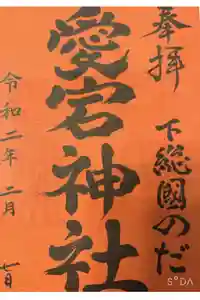 奉拝
下総國のだ
愛宕神社
令和二年二月七日
SODA